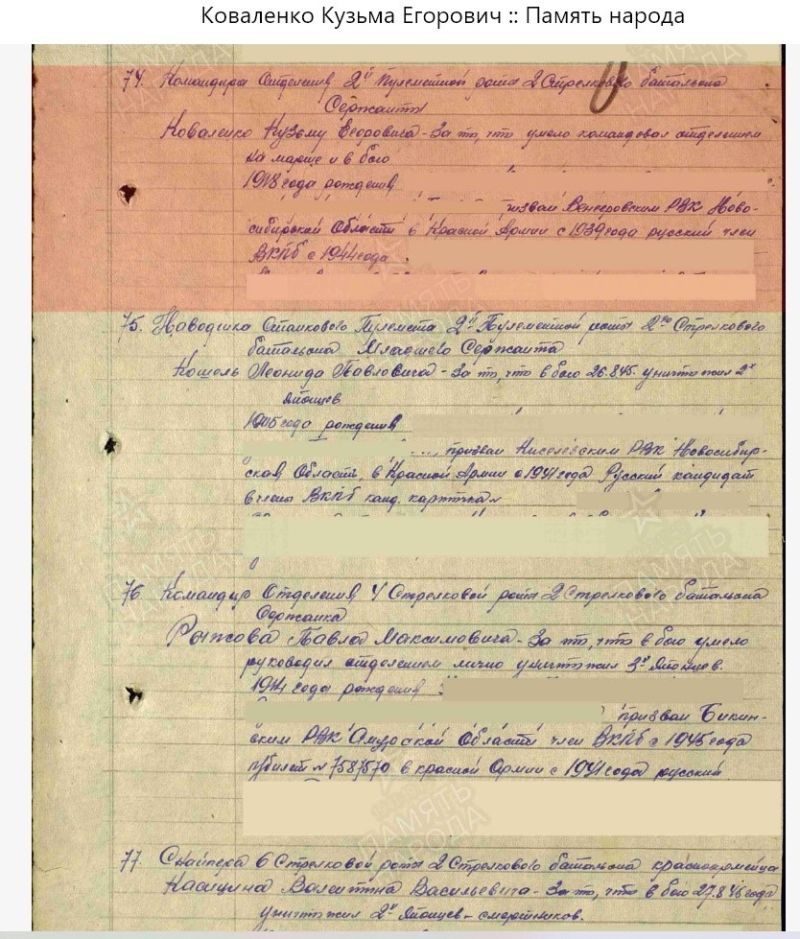 Коваленко Кузьма Егорович :: Память народа
74. Командира Отделения 2й Пулеметной роты 2 Стрелкового батальона
Сержанта
Коваленко Кузьму Егоровича - За то, что умело командовал отделением
на марше и в бою
1918 года рождения
призван Венгеровским РВК Ново-
сибирской Области в Красной Армии с 1939 года русский член
ВКПб с 1944 года
75. Наводчика Станкового Пулемета 2й Пулеметной роты 2го Стрелкового
батальона Младшего Сержанта
Кошель Леонида Павловича - За то, что в бою 26.8.45. уничтожил 2х
японцев
года рождения
призван Киселевским РВК Новосибир-
ской Области, в Красной Армии с 1941 года Русский кандидат
в члены ВКПб канд. карточка №
76 Командир Отделения 4 Стрелковой роты 2 Стрелкового батальона
Рыжова Павла Максимовича - За то, что в бою умело
руководил отделением лично уничтожил 3х Японцев.
1914 года рождения
призван Бикин-
ским РВК Амурской Области член ВКПб с 1945 года
п/билет № 7587570 в красной Армии с 1941 года русский
77. Снайпера 6 Стрелковой роты 2 Стрелкового батальона красноармейца
Валентина Васильевича - За то, что в бою 27.8.45 года
уничтожил 2х Японцев - смертников.